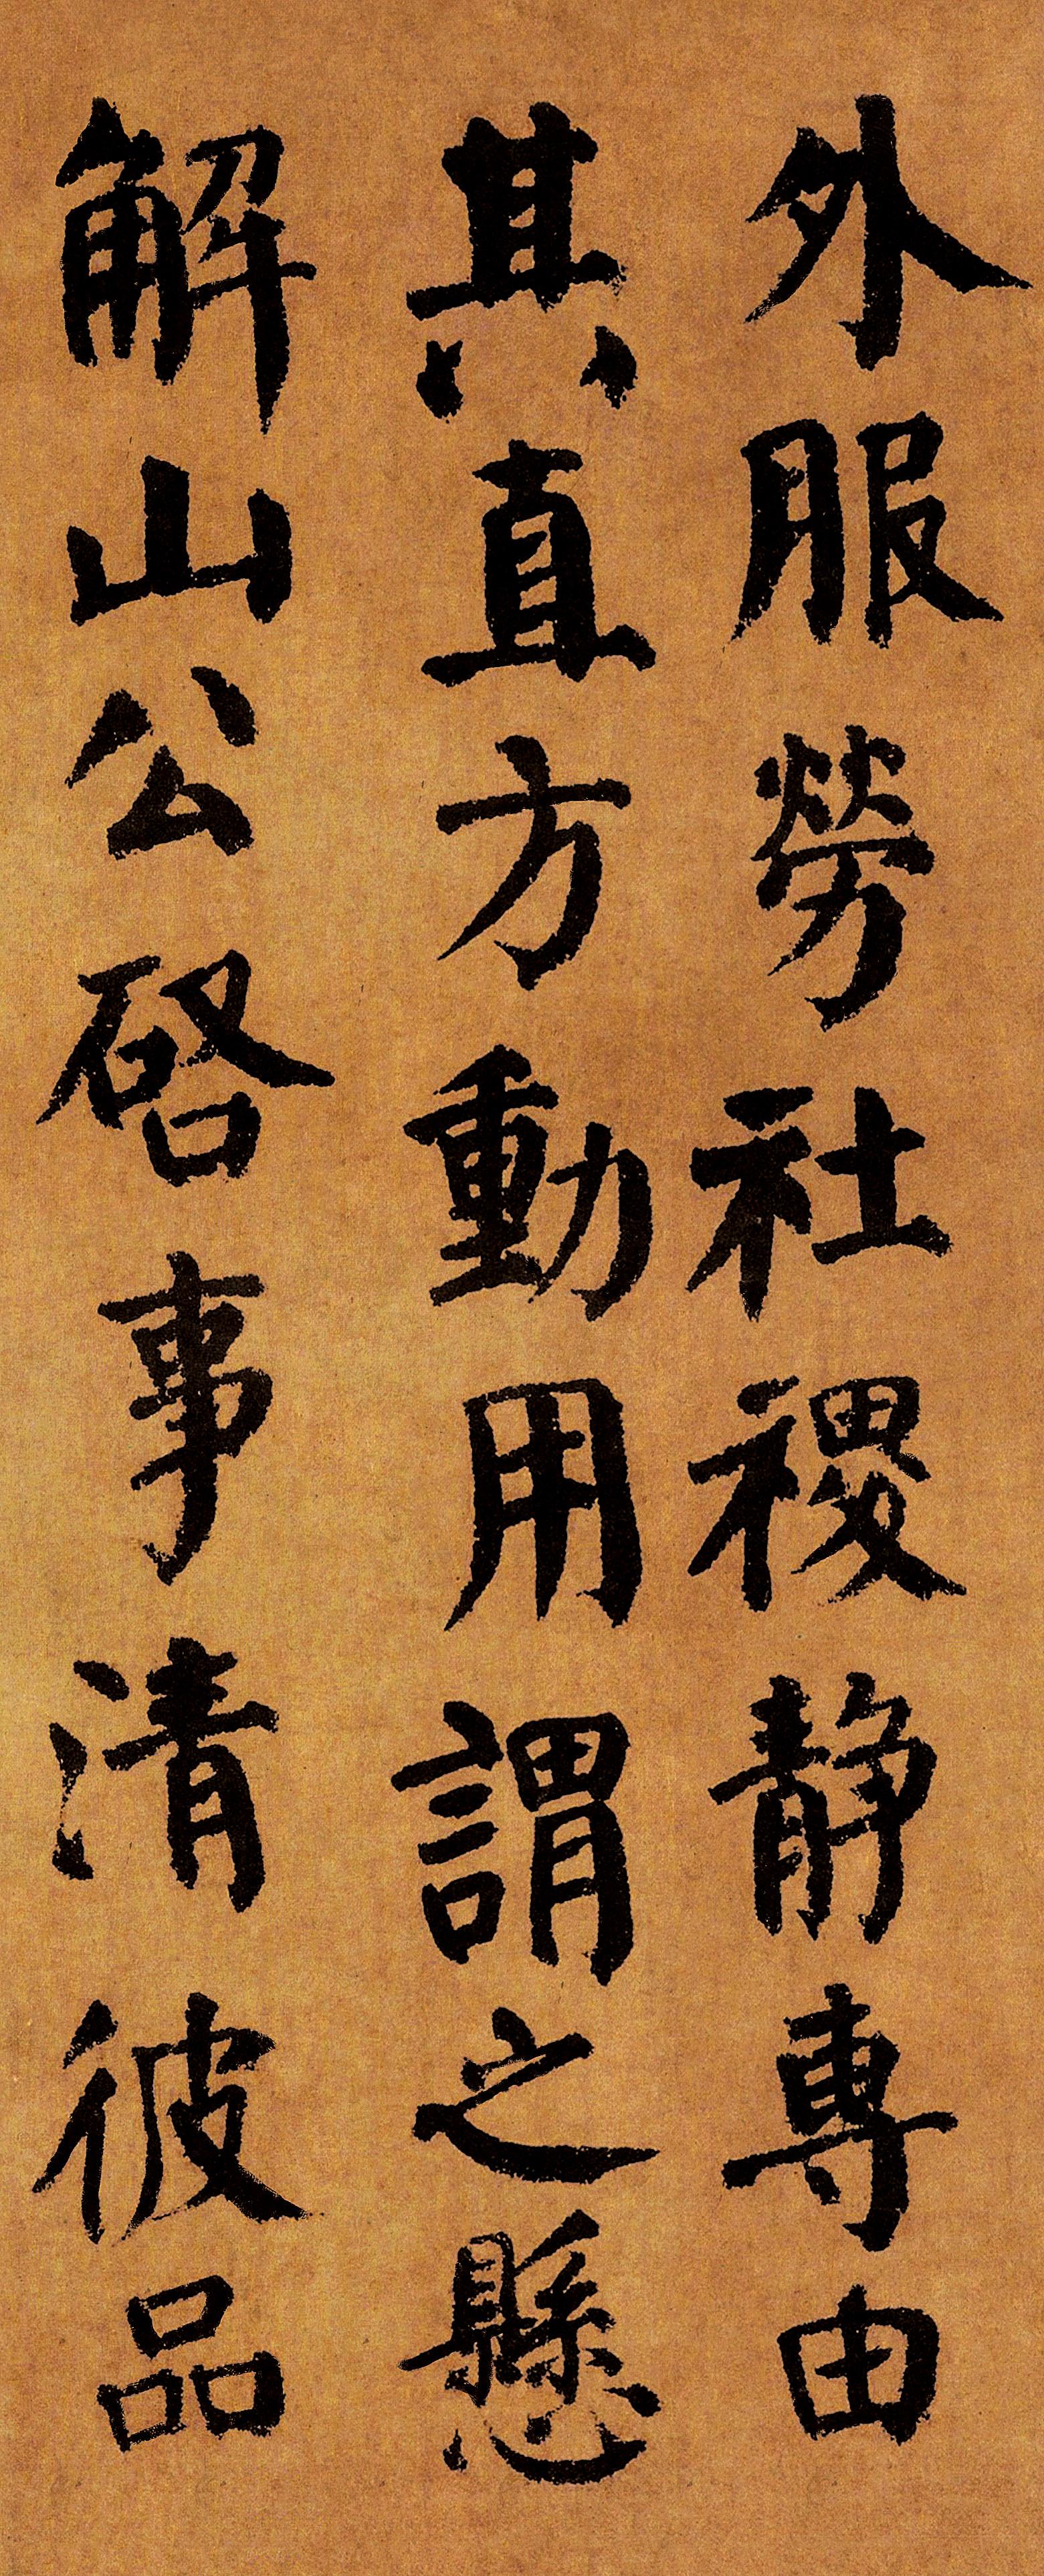 外服勞社稷靜專由
其直方動用謂之懸
解山公啓事清彼品